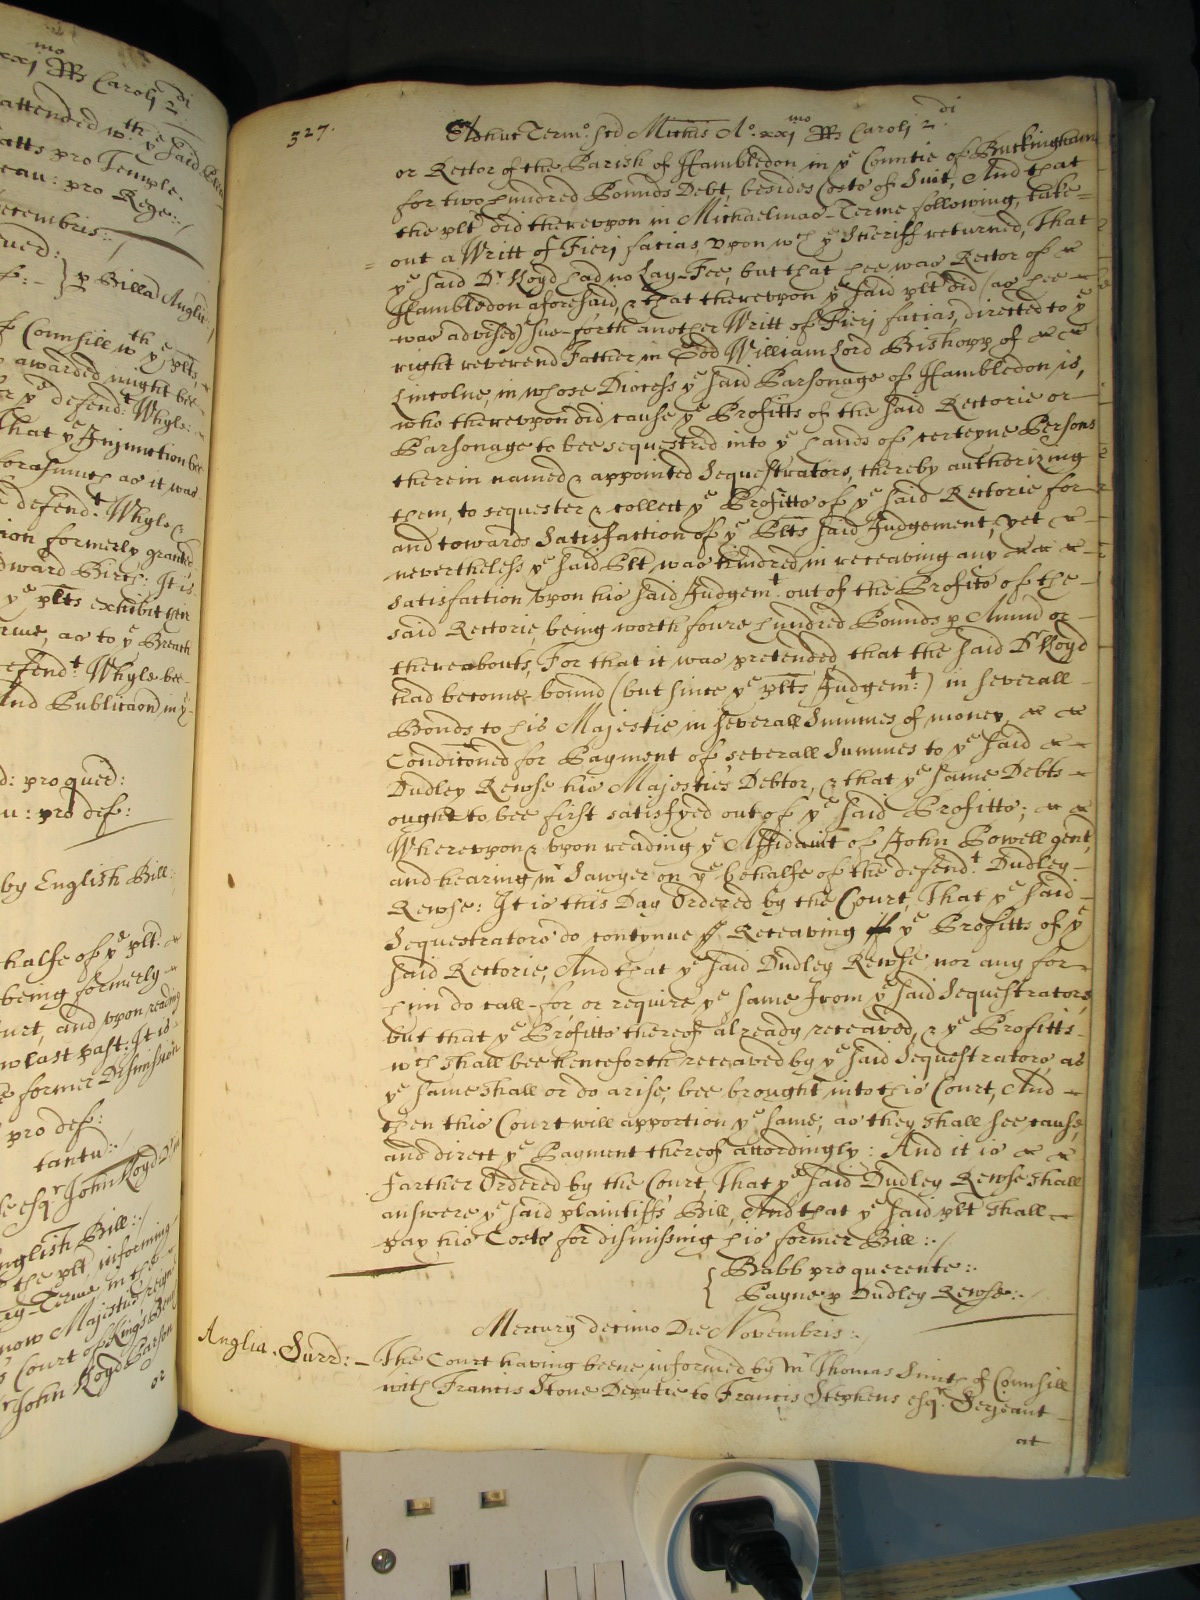 xxj mo RRs Caroli 2 di
attended wth ye said
atts pro Temple.
eau: pro Rege:
ecembris:
qued:
p Billa Anglic
of Counsill wth ye plts
awarded might bee
ye defendt Whyle:
That ye Injunction bee
forasmuch as it was
defendt Whyle &
ion formerly graunted
dward Birch: It is
ye plts exhibit their
rme, as to ye Breach
efendt Whyle bee
And Publicacon in ye
d: pro qued:
u: pro def:
by English Bill:
halfe of ye plt
being formerly
urt, and upon reading
last past: It is
former Dismission
pro def:
tantu:
esqr John Loyd Dr in
nglish Bill:
the plt, informing
Terme in the
now Majesties reigne
Court of Kings Bench
John Loyd Parson
or
327.
Adhuc Termo. Scd Michis Ao. xxj mo RRs Caroli 2 di
or Rector of the Parish of Hambledon in ye Countie of Buckingham
for two hundred Pounds Debt, besides Costs of Suit, And that
the plt did therevpon in Michaelmas-Terme following, take
out a Writt of Fieri facias, vpon wch ye Sheriff returned, That
ye said Dr Loyd had no Lay-Fee, but that hee was Rector of
Hambledon aforesaid, & that therevpon ye said plt did (as hee
was advised) sue-forth another Writt of Fieri facias, directed to ye
right reverend Father in God William Lord Bishopp of
Lincolne, in whose Diocess ye said Parsonage of Hambledon is,
who therevpon did cause ye Profitts of the said Rectorie or
Parsonage to bee sequestred into ye hands of certeyne Persons
therein named & appointed Sequestrators, thereby authorizing
them, to sequester & collect ye Profitts of ye said Rectorie for
and towards Satisfaction of ye Plts said Judgement, yet
nevertheless ye said Plt was hindred in receaving any
satisfaction vpon his said Judgemt. out of the Profits of the
said Rectorie, being worth foure hundred Pounds p Annu or
thereabouts, For that it was pretended, that the said Dr Loyd
had become bound (but since ye plts Judgemt:) in severall
Bonds to his Majestie in severall Summes of money,
Conditioned for Payment of severall Summes to ye said
Dudley Rewse his Majesties Debtor, & that ye same Debts
ought to bee first satisfyed out of ye said Profitts;
Wherevpon & vpon reading ye Affidavit of John Powell gent,
and hearing mr Sawyer on ye behalfe of the defendt. Dudley
Rewse: It is this Day Ordered by the Court, That ye said
Sequestrators do contynue Receaving ye Profitts of ye
said Rectorie, And that ye said Dudley Rewse nor any for
him do call-for, or require ye same from ye said Sequestrators,
but that ye Profitts thereof already receaved, & ye Profitts
wch shall bee henceforth receaved by ye said Sequestrators, as
ye same shall or do arise, bee brought into this Court, And
then this Court will apportion ye same, as they shall see cause,
and direct ye Payment thereof accordingly: And it is
farther Ordered by the Court, That ye said Dudley Rewse shall
answere ye said plaintiffs Bill, And that ye said plt shall
pay his Costs for dismissing his former Bill:
Babb pro querente:
Payne p Dudley Rewse:
Mercurij decimo Die Novembris:
Anglia. Surr:
The Court having beene informed by mr Thomas of Counsill
with Francis Stone Deputie to Francis Stephens esqr. Serjeant
at